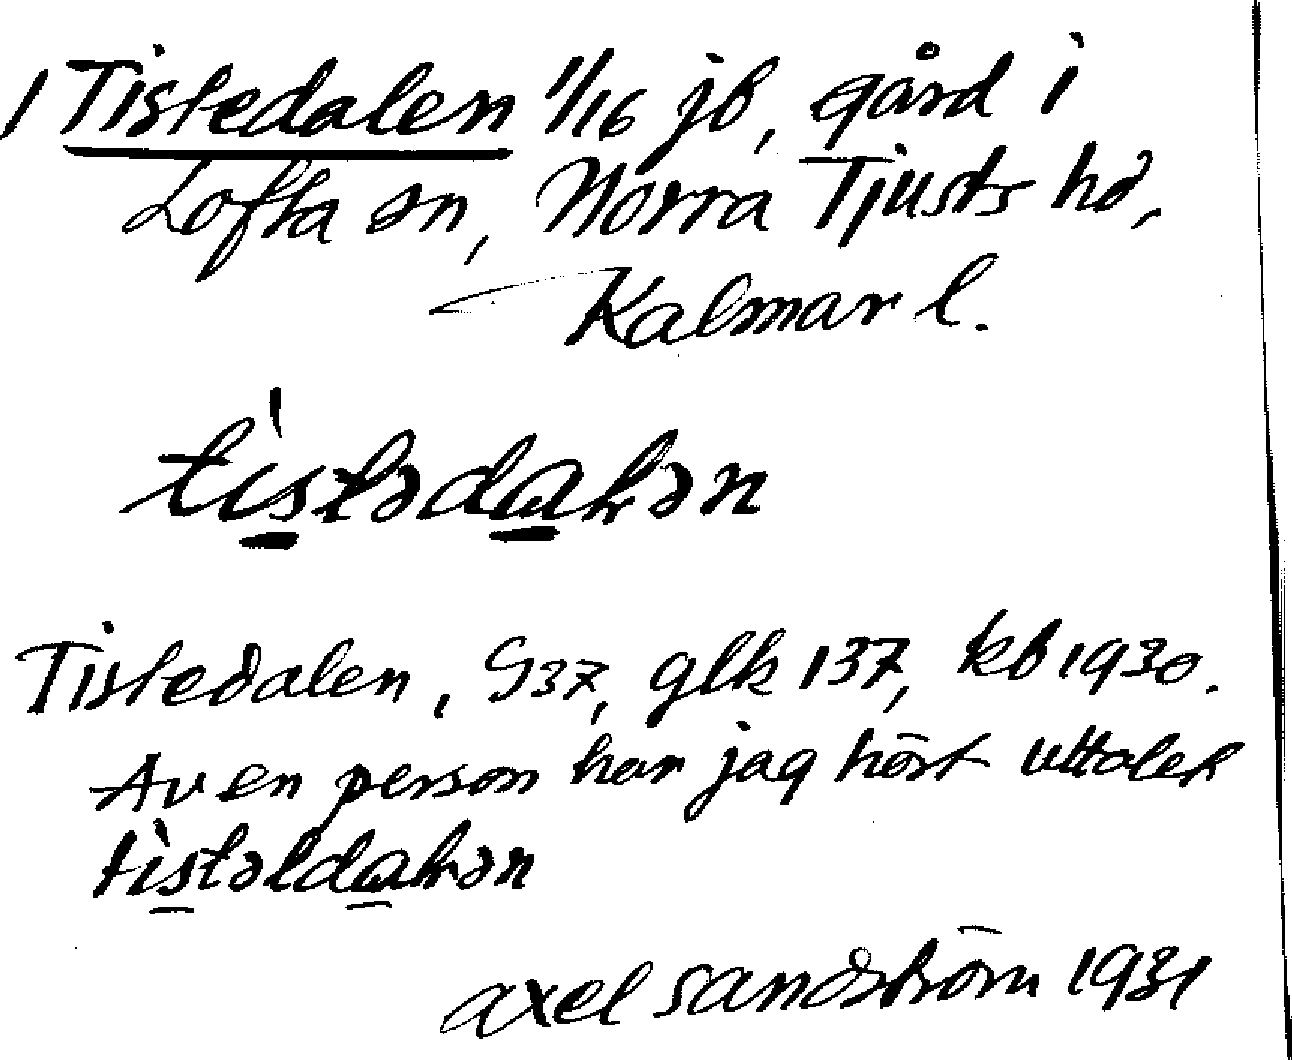 1 Tistedalen 1/16 jb, gård i
Lofta sn, Norra Tjusts hd,
Kalmar l.
tistədaɭən
Tistedalen, S37, glk 137, kb 1930.
Av en person har jag hört uttalet
tistəldaɭən
Axel Sandström 1931